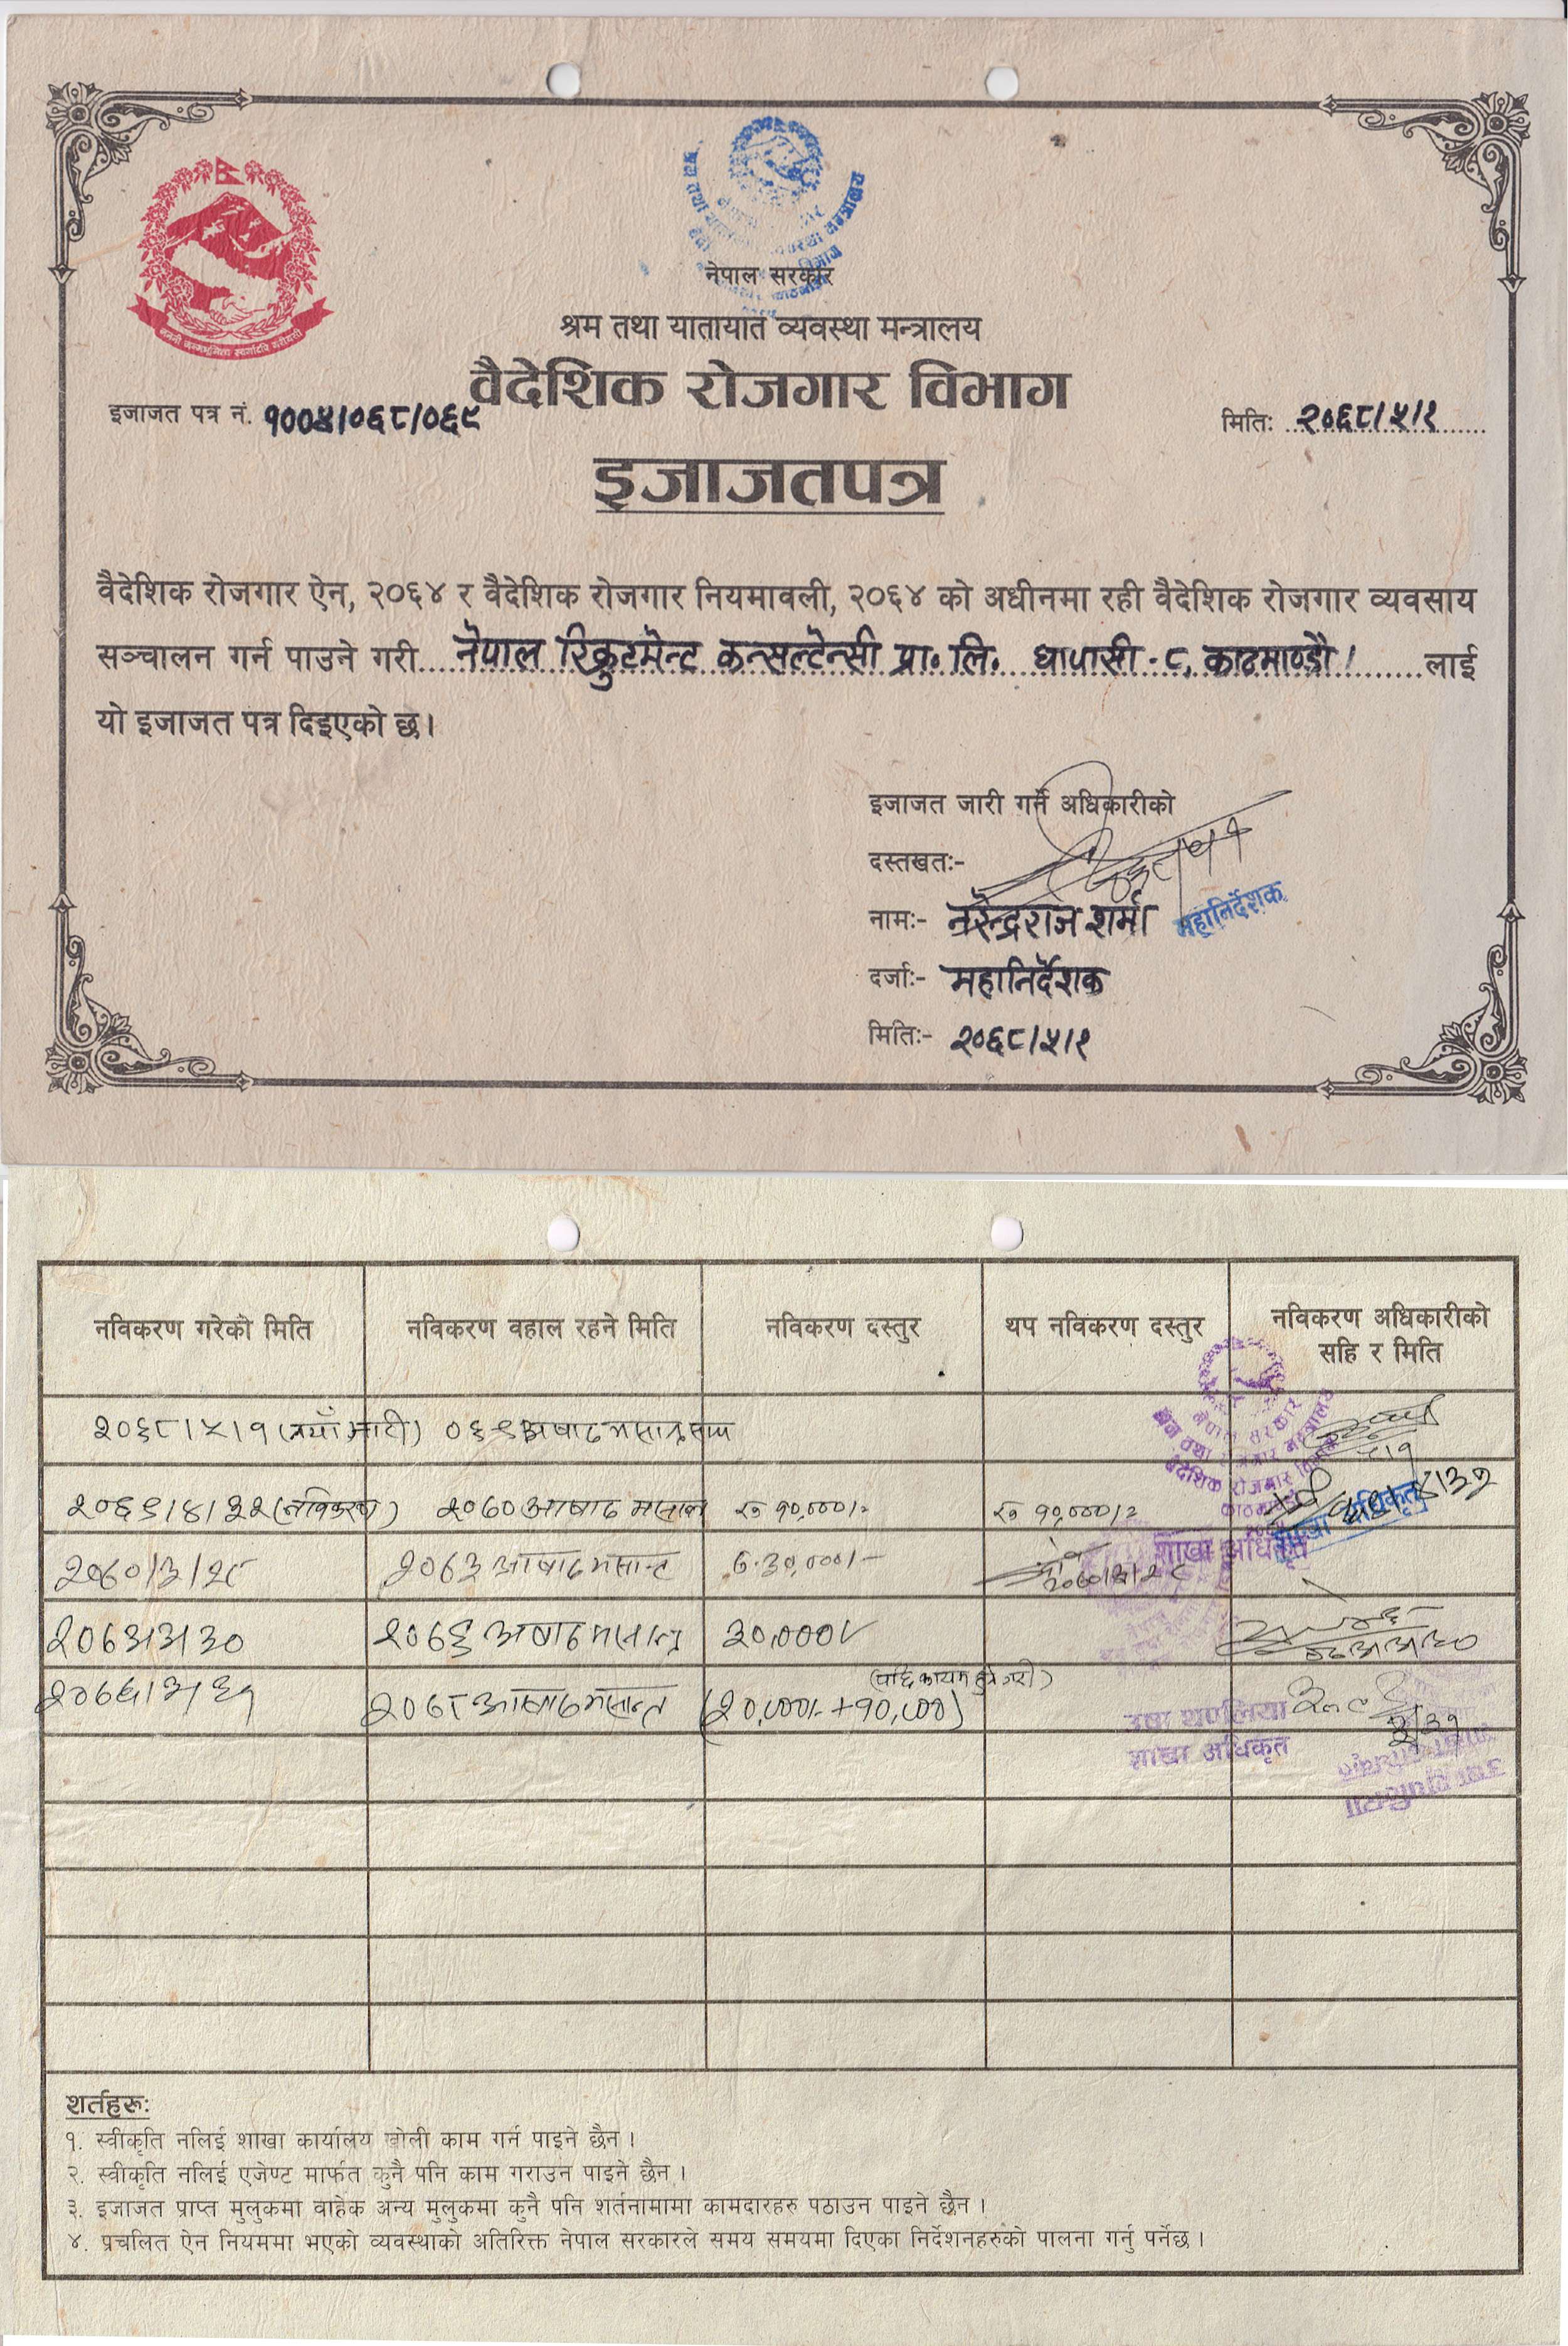 नेपाल सरकार
श्रम तथा यातायात व्यवस्था मन्त्रालय
वैदेशिक रोजगार विभाग
इजाजत पत्र नं. १००४/०६८/०६९
मितिः २०६८/५/१
इजाजतपत्र
वैदेशिक रोजगार ऐन, २०६४ र वैदेशिक रोजगार नियमावली, २०६४ को अधीनमा रही वैदेशिक रोजगार व्यवसाय
सञ्चालन गर्न पाउने गरी नेपाल रिक्रुटमेन्ट कन्सल्टेन्सी प्रा. लि. धापासी - ८, काठमाण्डौ । लाई
यो इजाजत पत्र दिइएको छ।
इजाजत जारी गर्ने अधिकारीको
दस्तखतः-
नामः- नरेन्द्रराज शर्मा महानिर्देशक
दर्जाः- महानिर्देशक
मितिः- २०६८/५/१
नविकरण गरेको मिति नविकरण वहाल रहने मिति नविकरण दस्तुर थप नविकरण दस्तुर नविकरण अधिकारीको
सहि र मिति
२०६८/५/१ ०६९ अषाढ मसान्त सम्म
२०६९/४/३२ (नविकरण) २०७० आषाढ मसान्त रु १०,०००/- रु १०,०००/-
२०७०/३/२८ २०७३ आषाढ मसान्त ३०,०००/-
शाखा अधिकृत
२०७३।३।३० २०७६ अषाढ मसान्त ३०,०००/-
२०७६।३।३१ २०७८ आषाढ मसान्त (२०,०००/- + १०,०००)
उषा थपलिया
शाखा अधिकृत
शर्तहरूः
१. स्वीकृति नलिई शाखा कार्यालय खोली काम गर्न पाइने छैन ।
२. स्वीकृति नलिई एजेण्ट मार्फत कुनै पनि काम गराउन पाइने छैन ।
३. इजाजत प्राप्त मुलुकमा वाहेक अन्य मुलुकमा कुनै पनि शर्तनामामा कामदारहरु पठाउन पाइने छैन ।
४. प्रचलित ऐन नियममा भएको व्यवस्थाको अतिरिक्त नेपाल सरकारले समय समयमा दिएका निर्देशनहरुको पालना गर्नु पर्नेछ ।